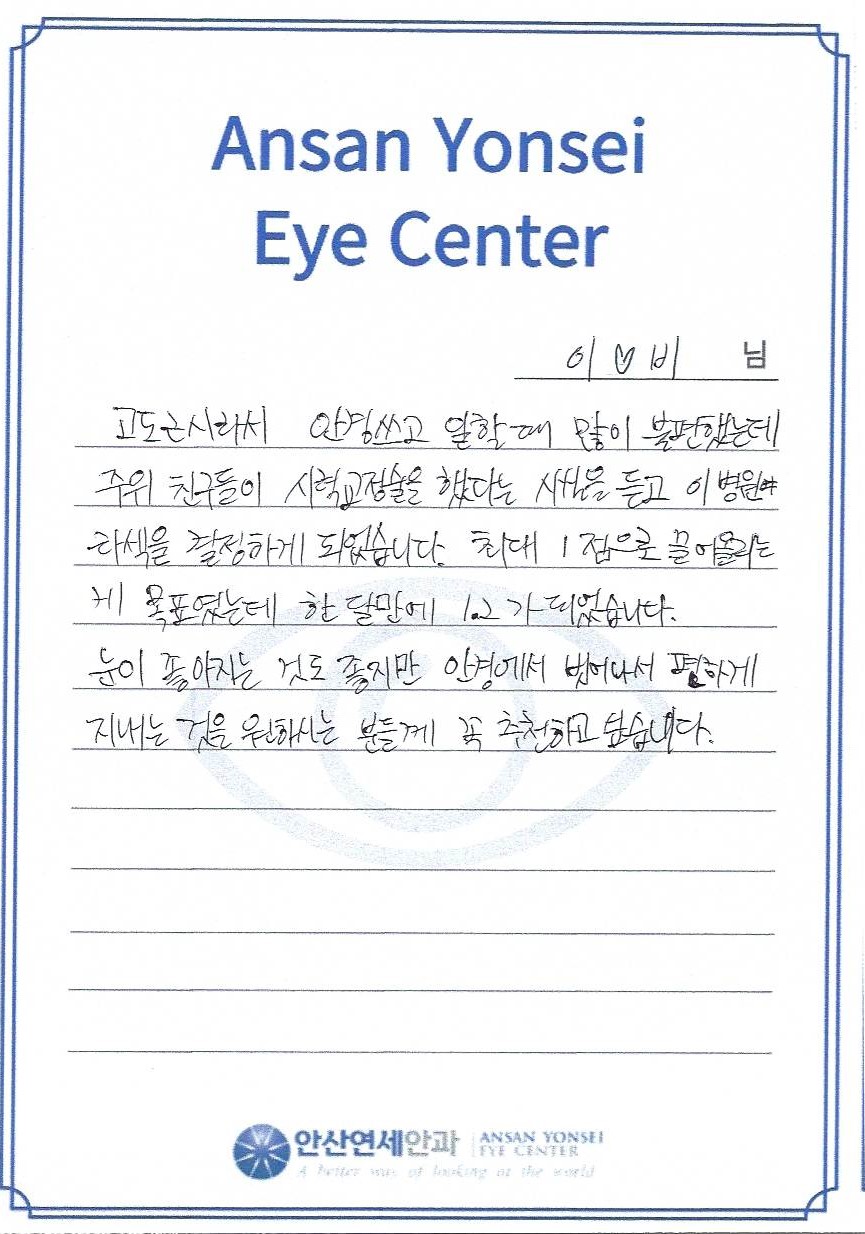 Ansan Yonsei
Eye Center
이♡비 님
고도근시라서 안경쓰고 일할때 많이 불편했는데
주위 친구들이 시력교정술을 했다는 사실을 듣고 이 병원에
라섹을 결정하게 되었습니다. 최대 1점으로 끌어올리는
게 목표였는데 한 달만에 1.2가 되었습니다.
눈이 좋아지는 것도 좋지만 안경에서 벗어나서 편하게
지내는 것을 원하시는 분들께 꼭 추천하고 싶습니다.
안산연세안과 ANSAN YONSEI
EYE CENTER
A better way of looking at the world